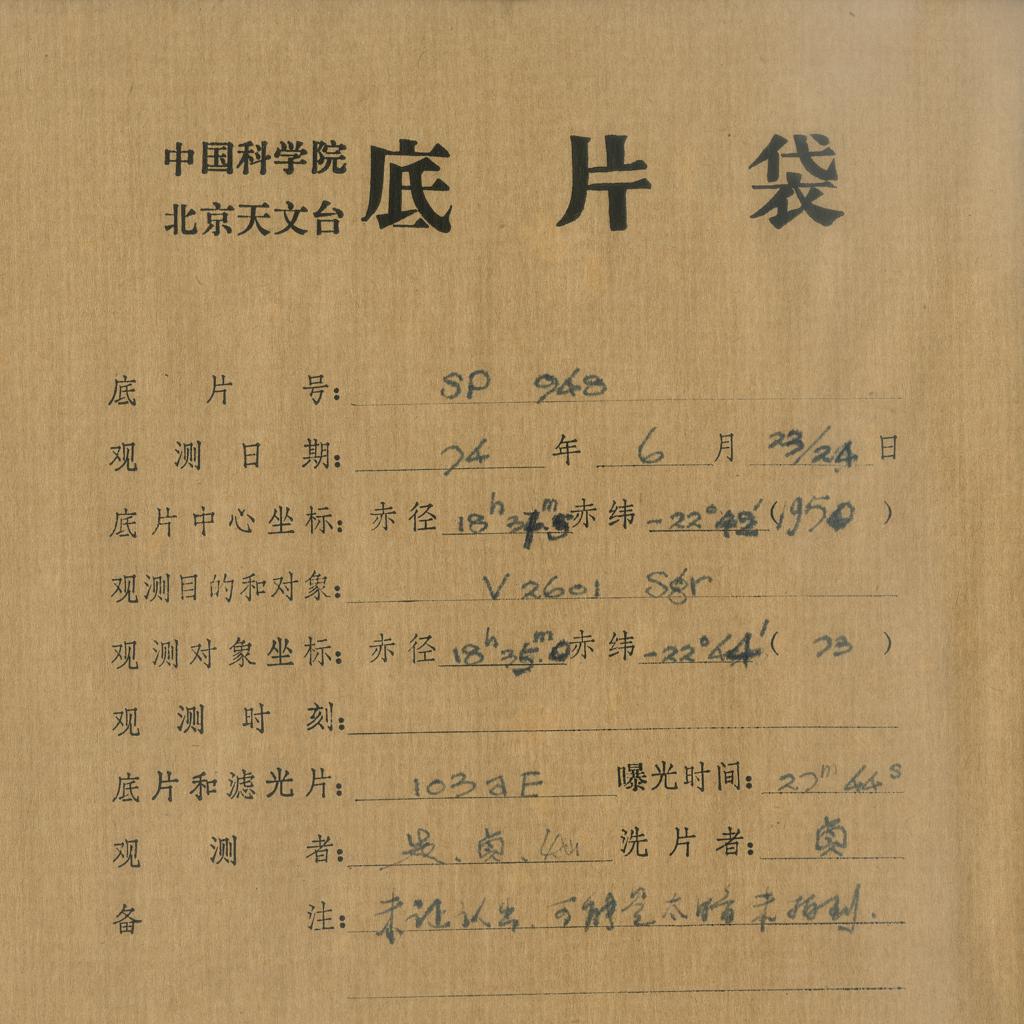 中国科学院
北京天文台
底片袋
底片号: SP 948
观测日期: 74 年 6 月 23/24 日
底片中心坐标: 赤径 18h 赤纬 -22°42′ (1950)
观测目的和对象: V 2601 Sgr
观测对象坐标: 赤径 18h 35m.0 赤纬 -22°44′ (73)
观测时刻:
底片和滤光片: 103aE 曝光时间: 27m 44s
观测者: 贞 洗片者: 贞
备注: 未证认出,可能是太暗未拍到.